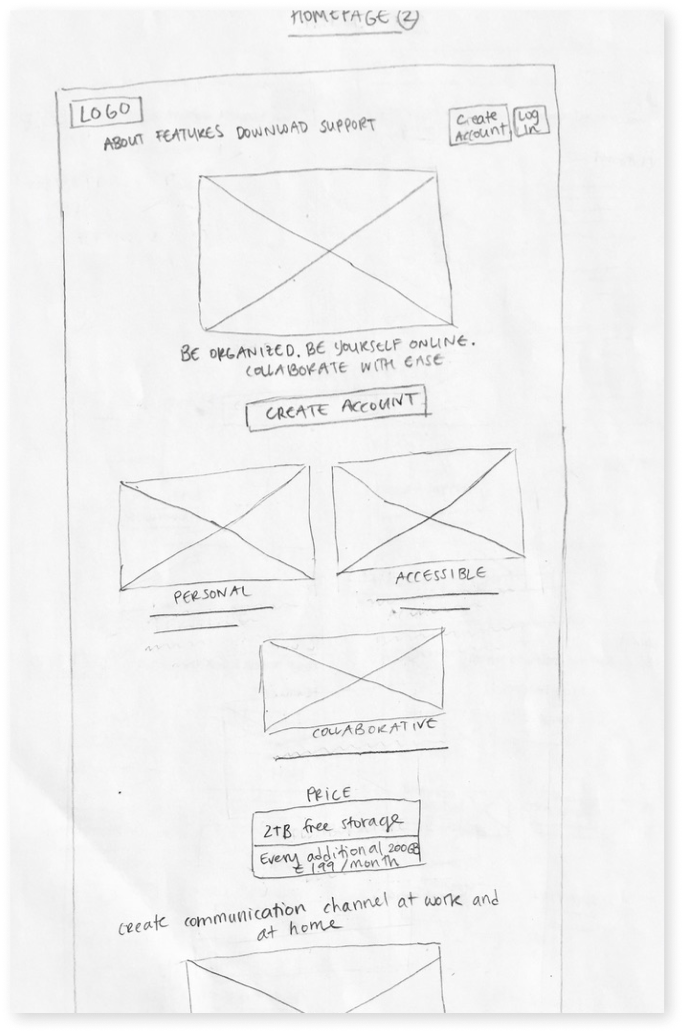 HOMEPAGE (2)
LOGO
ABOUT FEATURES DOWNLOAD SUPPORT
Create
Account
Log
In
BE ORGANIZED. BE YOURSELF ONLINE.
COLLABORATE WITH EASE
CREATE ACCOUNT
PERSONAL
ACCESSIBLE
COLLABORATIVE
PRICE
2TB free storage
Every additional 200GB
1,99/month
create communication channel at work and
at home